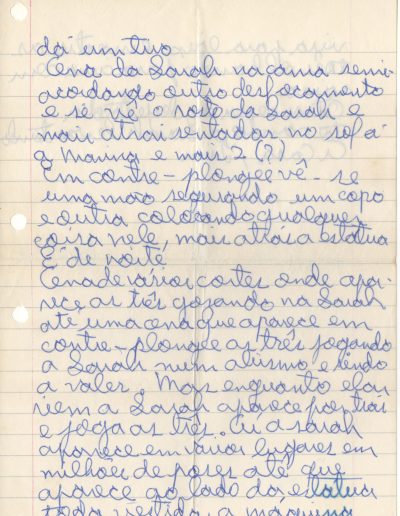 dá um tiro
Cena da Sarah na cama semi
acordando outro desfocamento
e se vê o rosto da Sarah e
mais atrás sentadas no sofá
a Marina e mais 2 (?)
Em contre-plongée vê-se
uma mão segurando um copo
e outra colocando qualquer
coisa nele, mais atrás a estátua
E' de noite
Cena de vários cortes onde apa-
rece as três gozando na Sarah
até uma cena que aparece em
contre-plongée as três jogando
a Sarah num abismo e rindo
a valer. Mas enquanto elas
riem a Sarah aparece por trás
e joga as três. Cu a Sarah
aparece em vários lugares em
milhões de poses até que
aparece ao lado da estátua
toda vestida, a máquina